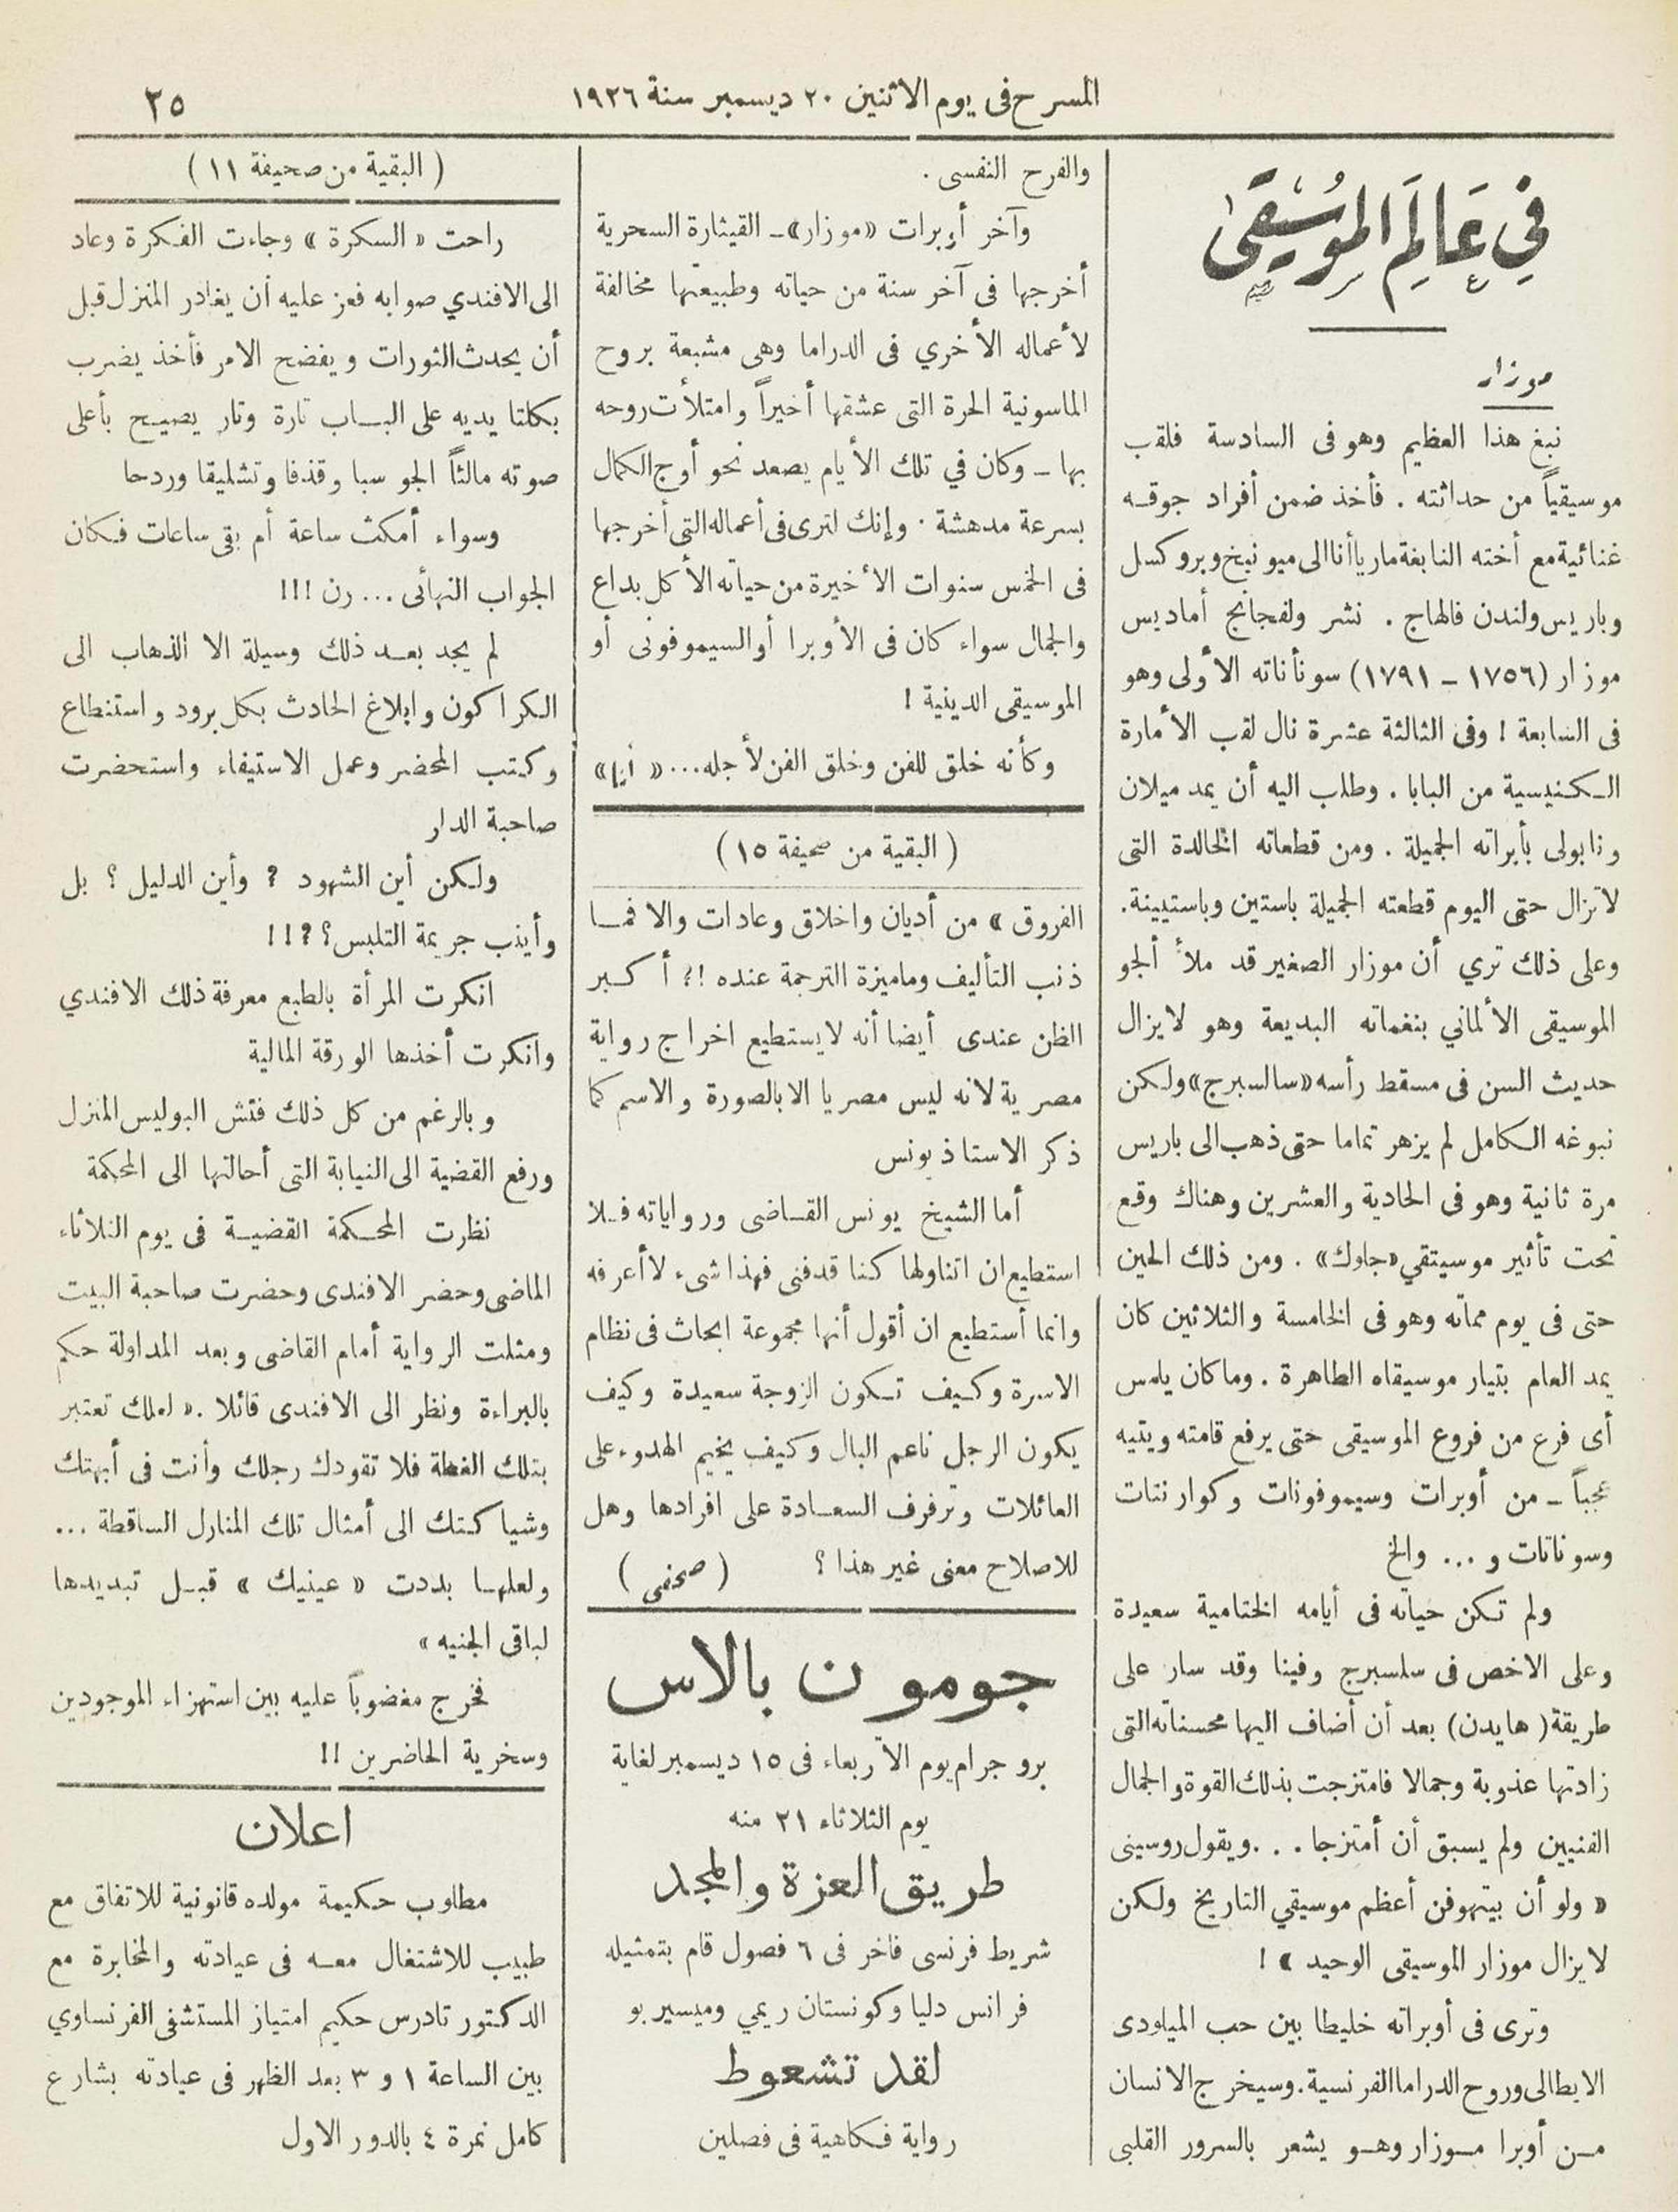 المسرح فى يوم الاثنين ٢٠ ديسمبر سنة ١٩٢٦
٢٥
في عالم الموسيقى
موزار
نبغ هذا العظيم وهو فى السادسة فلقب
موسيقياً من حداثته . فأخذ ضمن أفراد جوقه
غنائية مع أخته النابغة ماريا أنا الى ميونيخ وبروكسل
وباريس ولندن فالهاج . نشر ولفجانج أماديس
موزار (١٧٥٦ - ١٧٩١) سوناتاته الأولى وهو
فى السابعة ! وفى الثالثة عشرة نال لقب الأمارة
الكنيسية من البابا . وطلب اليه أن يمد ميلان
ونابولى بأبراته الجميلة . ومن قطعاته الخالدة التى
لا تزال حتى اليوم قطعته الجميلة باستين وباستيينة.
وعلى ذلك تري أن موزار الصغير قد ملأ ألجو
الموسيقى الألماني بنغماته البديعة وهو لا يزال
حديث السن فى مسقط رأسه «سالسبرج» ولكن
نبوغه الكامل لم يزهر تماما حتى ذهب الى باريس
مرة ثانية وهو فى الحادية والعشرين وهناك وقع
تحت تأثير موسيتقي «جلوك» . ومن ذلك الحين
حتى فى يوم مماته وهو فى الخامسة والثلاثين كان
يمد العام بتيار موسيقاه الطاهرة . وما كان يلمس
أى فرع من فروع الموسيقى حتى يرفع قامته ويتيه
عجباً - من أوبرات وسيموفونات وكوارنتات
وسوناتات و ... والخ
ولم تكن حياته فى أيامه الختامية سعيدة
وعلى الاخص فى سلسبرج وفينا وقد سار على
طريقة ( هايدن ) بعد أن أضاف اليها محسناته التى
زادتها عذوبة وجمالا فامتزجت بذلك القوة والجمال
الفنيين ولم يسبق أن أمتزجا . . . ويقول روسينى
« ولو أن بيتهوفن أعظم موسيقي التاريخ ولكن
لا يزال موزار الموسيقى الوحيد » !
وترى فى أوبراته خليطا بين حب الميلودى
الايطالى وروح الدراما الفرنسية. وسيخرج الانسان
من أوبرا موزار وهو يشعر بالسرور القلبى
والفرح النفسى .
وآخر أوبرات «موزار» - القيثارة السحرية
أخرجها فى آخر سنة من حياته وطبيعتها مخالفة
لأعماله الأخري فى الدراما وهى مشبعة بروح
الماسونية الحرة التى عشقها أخيراً وامتلأت روحه
بها - وكان في تلك الأيام يصعد نحو أوج الكمال
بسرعة مدهشة . وإنك لترى فى أعماله التى أخرجها
فى الخمس سنوات الأخيرة من حياته الأكل بداع
والجمال سواء كان فى الأوبرا أو السيموفونى أو
الموسيقى الدينية !
وكأنه خلق للفن وخلق الفن لأجله...
(البقية من صحيفة ١٥)
الفروق » من أديان واخلاق وعادات والا فما
ذنب التأليف وما ميزة الترجمة عنده !؟ أكبر
الظن عندى أيضا أنه لا يستطيع اخراج رواية
مصرية لانه ليس مصريا الا بالصورة والاسم كما
ذكر الاستاذ يونس
أما الشيخ يونس القاضى ورواياته فلا
استطيع ان اتناولها كنا قد فنى فهذا شىء لا أعرفه
وانما أستطيع ان أقول أنها مجموعة ابحاث فى نظام
الاسرة وكيف تكون الزوجة سعيدة وكيف
يكون الرجل ناعم البال وكيف يخيم الهدوء على
العائلات وترفرف السعادة على افرادها وهل
للاصلاح معنى غير هذا ؟ ( صحفى )
جومون بالاس
بروجرام يوم الأربعاء فى ١٥ ديسمبر لغاية
يوم الثلاثاء ٢١ منه
طريق العزة والمجد
شريط فرنسى فاخر فى ٦ فصول قام بتمثيله
فرانس دليا وكونستان ريمي وميسيربو
لقد تشعوط
رواية فكاهية فى فصلين
( البقية من صحيفة ١١ )
راحت « السكرة » وجاءت الفكرة وعاد
الى الافندي صوابه فعز عليه أن يغادر المنزل قبل
أن يحدث الثورات ويفضح الامر فأخذ يضرب
بكلتا يديه على الباب تارة وتار يصيح بأعلى
صوته مالئاً الجو سبا وقذفا وتشليقا وردحا
وسواء أمكث ساعة أم بقى ساعات فكان
الجواب النهائى ... رن !!!
لم يجد بعد ذلك وسيلة الا الذهاب الى
الكراكون وابلاغ الحادث بكل برود واستنطاع
وكتب المحضر وعمل الاستيفاء واستحضرت
صاحبة الدار
ولكن أين الشهود ؟ وأين الدليل ؟ بل
وأيذب جريمة التلبس؟؟!!
انكرت المرأة بالطبع معرفة ذلك الافندي
وانكرت أخذها الورقة المالية
وبالرغم من كل ذلك فتش البوليس المنزل
ورفع القضية الى النيابة التى أحالتها الى المحكمة
نظرت المحكمة القضية فى يوم الثلاثاء
الماضى وحضر الافندى وحضرت صاحبة البيت
ومثلت الرواية أمام القاضى وبعد المداولة حكم
بالبراءة ونظر الى الافندى قائلا .« لعلك تعتبر
بتلك الغطة فلا تقودك رجلك وأنت فى أبهتك
وشياكتك الى أمثال تلك المنازل الساقطة ...
ولعلها بددت « عينيك » قبل تبديدها
لباقى الجنيه »
فخرج مغضوباً عليه بين استهزاء الموجودين
وسخرية الحاضرين !!
اعلان
مطلوب حكيمة مولده قانونية للاتفاق مع
طبيب للاشتغال معه فى عيادته والمخابرة مع
الدكتور تادرس حكيم امتياز المستشفى الفرنساوي
بين الساعة ١ و ٣ بعد الظهر فى عيادته بشارع
كامل نمرة ٤ بالدور الاول